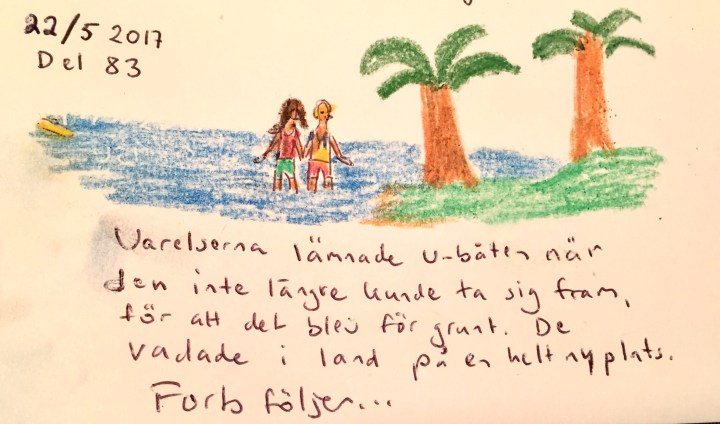 22/5 2017
Del 83
Varelserna lämnade u-båten när
den inte längre kunde ta sig fram,
för att det blev för grunt. De
vadade i land på en helt ny plats.
Forts följer...